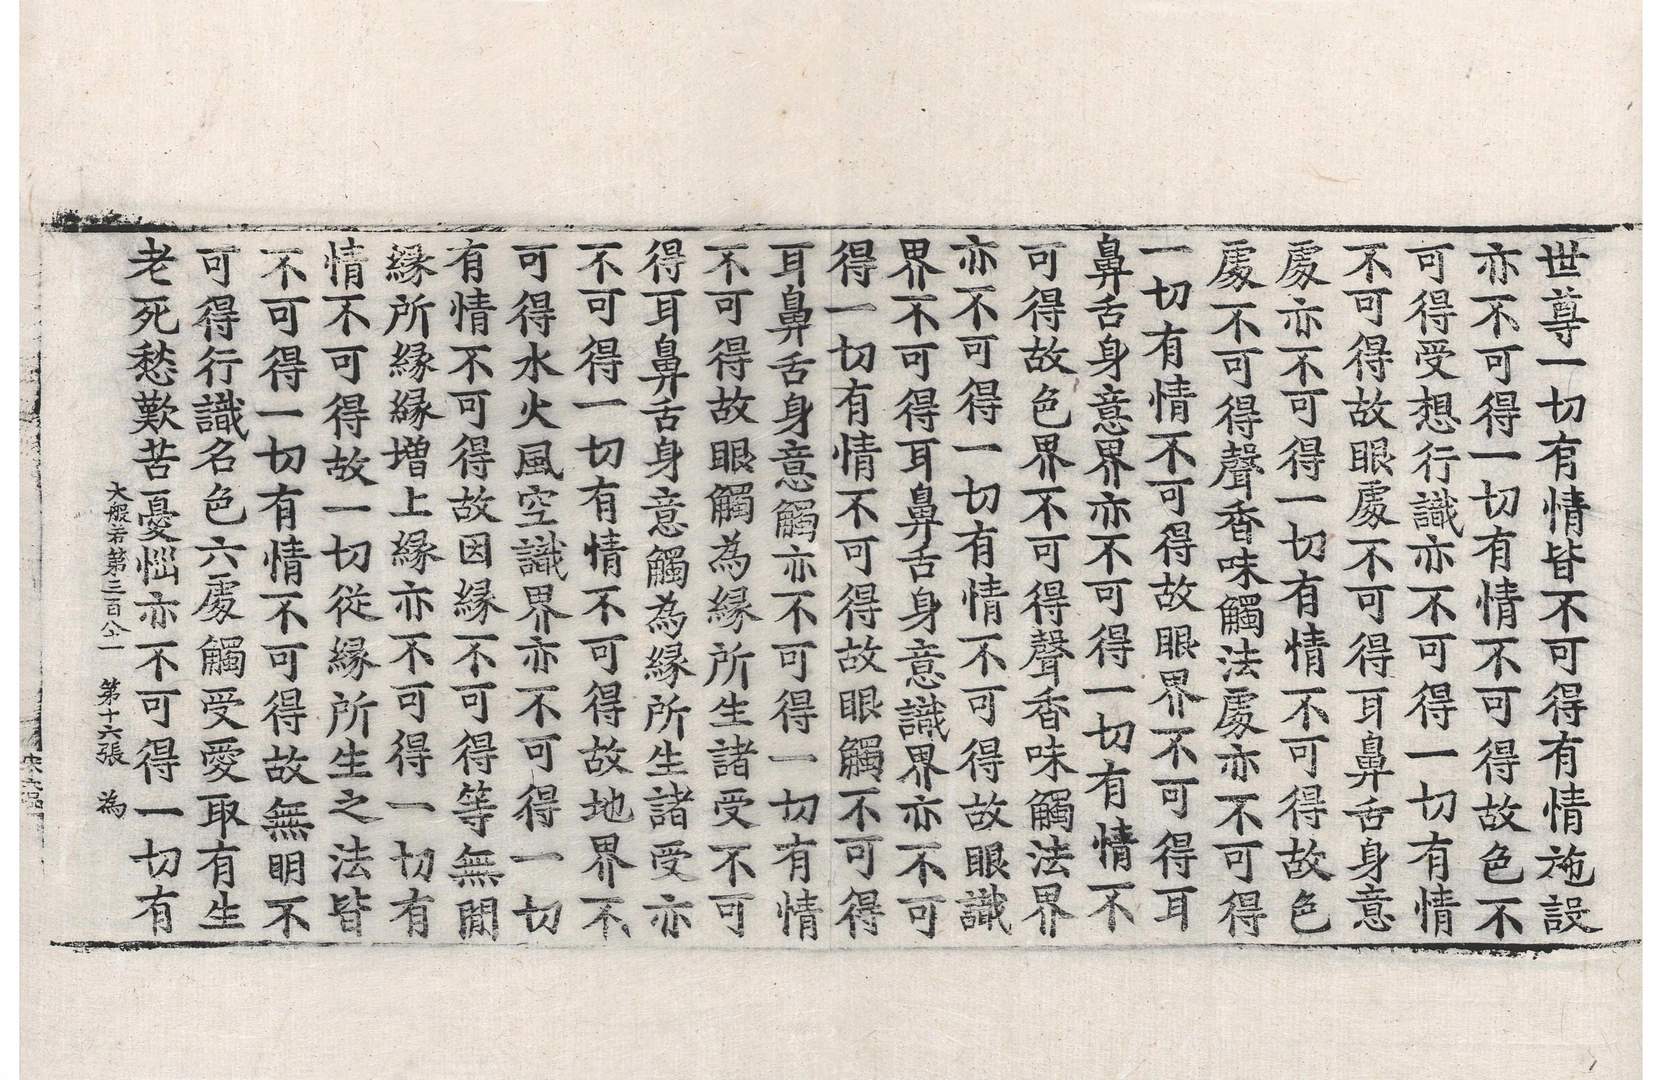 世尊一切有情皆不可得有情施設
亦不可得一切有情不可得故色不
可得受想行識亦不可得一切有情
不可得故眼處不可得耳鼻舌身意
處亦不可得一切有情不可得故色
處不可得聲香味觸法處亦不可得
一切有情不可得故眼界不可得耳
鼻舌身意界亦不可得一切有情不
可得故色界不可得聲香味觸法界
亦不可得一切有情不可得故眼識
界不可得耳鼻舌身意識界亦不可
得一切有情不可得故眼觸不可得
耳鼻舌身意觸亦不可得一切有情
不可得故眼觸為縁所生諸受不可
得耳鼻舌身意觸為縁所生諸受亦
不可得一切有情不可得故地界不
可得水火風空識界亦不可得一切
有情不可得故因縁不可得等無閒
縁所縁縁增上縁亦不可得一切有
情不可得故一切從縁所生之法皆
不可得一切有情不可得故無明不
可得行識名色六處觸受愛取有生
老死愁歎苦憂惱亦不可得一切有
大般若第三百八十一 第十六張 為